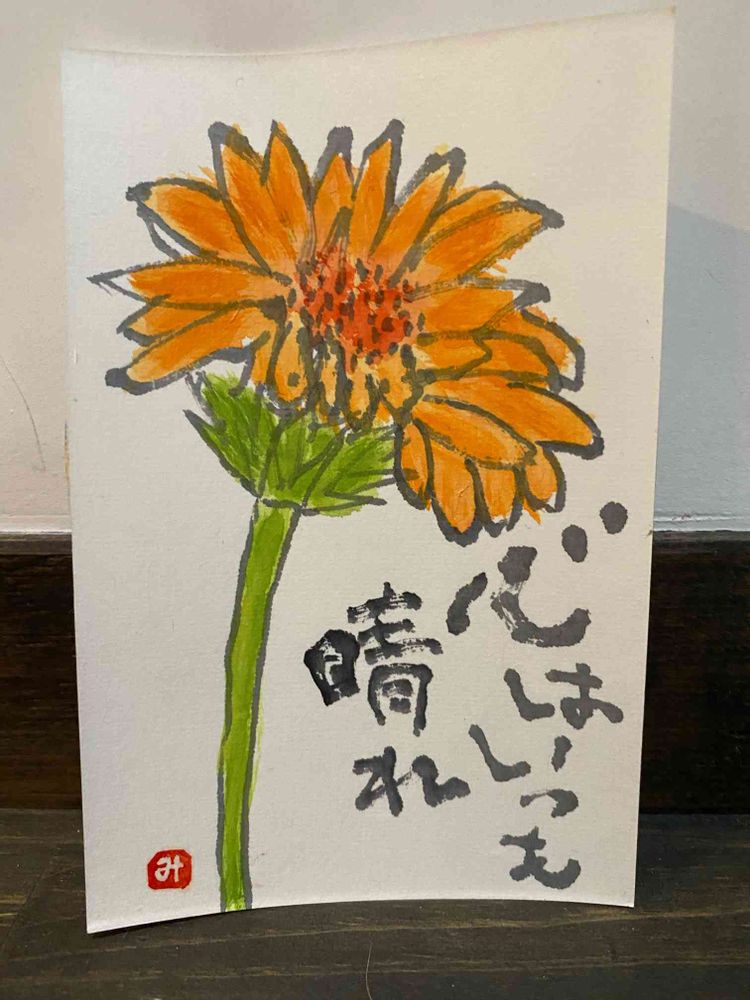 心はいつも
晴れ
み